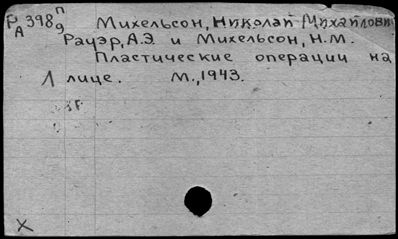 Р 398 п
А 9
Михельсон, Николай Михайлович
Рауэр, А.Э. и Михельсон, Н.М.
Пластические операции на
1 лице. М., 1943.
X